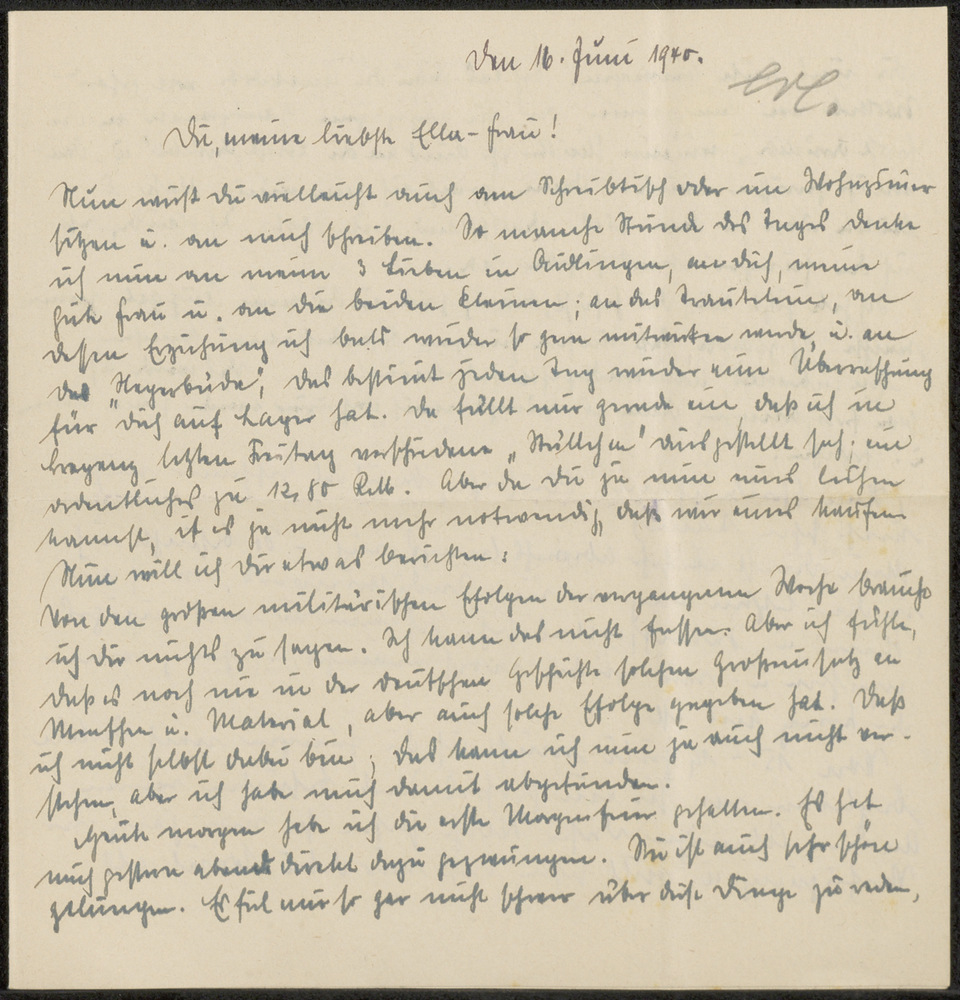 Den 16. Juni 1940.
Erl.
Du, meine liebste Ella-Frau!
Nun wirst Du vielleicht auch am Schreibtisch oder im Wohnzimmer
sitzen u. an mich schreiben. So manche Stunde des Tages denke
ich nun an meine 3 Lieben in Aidlingen, an dich, meine
gute Frau u. an die beiden Kleinen; an das Trautelein, an
dessen Erziehung ich bald wieder so gern mitwirken würde, u. an
das „Negerbüble“, das bestimt jeden Tag wieder eine Überraschung
für Dich auf Lager hat. Da fällt mir gerade ein daß ich in
Bregenz letzten Freitag verschiedene „Ställchen“ ausgestellt sah; ein
ordentliches zu 12,80 RM. Aber da Du ja nun eines leihen
kannst, ist es ja nicht mehr notwendig, daß wir eines kaufen.
Nun will ich Dir etwas berichten:
Von den großen militärischen Erfolgen der vergangenen Woche brauche
ich dir nichts zu sagen. Ich kann das nicht fassen. Aber ich fühle,
daß es noch nie in der deutschen Geschichte solchen Großeinsatz an
Menschen u. Material, aber auch solche Erfolge gegeben hat. Daß
ich nicht selbst dabei bin; das kann ich nun ja auch nicht ver-
stehen, aber ich habe mich damit abgefunden.
Heute morgen habe ich die erste Morgenfeier gehalten. Es hat
mich gestern abend direkt dazu gezwungen. Sie ist auch sehr schön
gelungen. Es fiel mir so gar nicht schwer über diese Dinge zu reden,